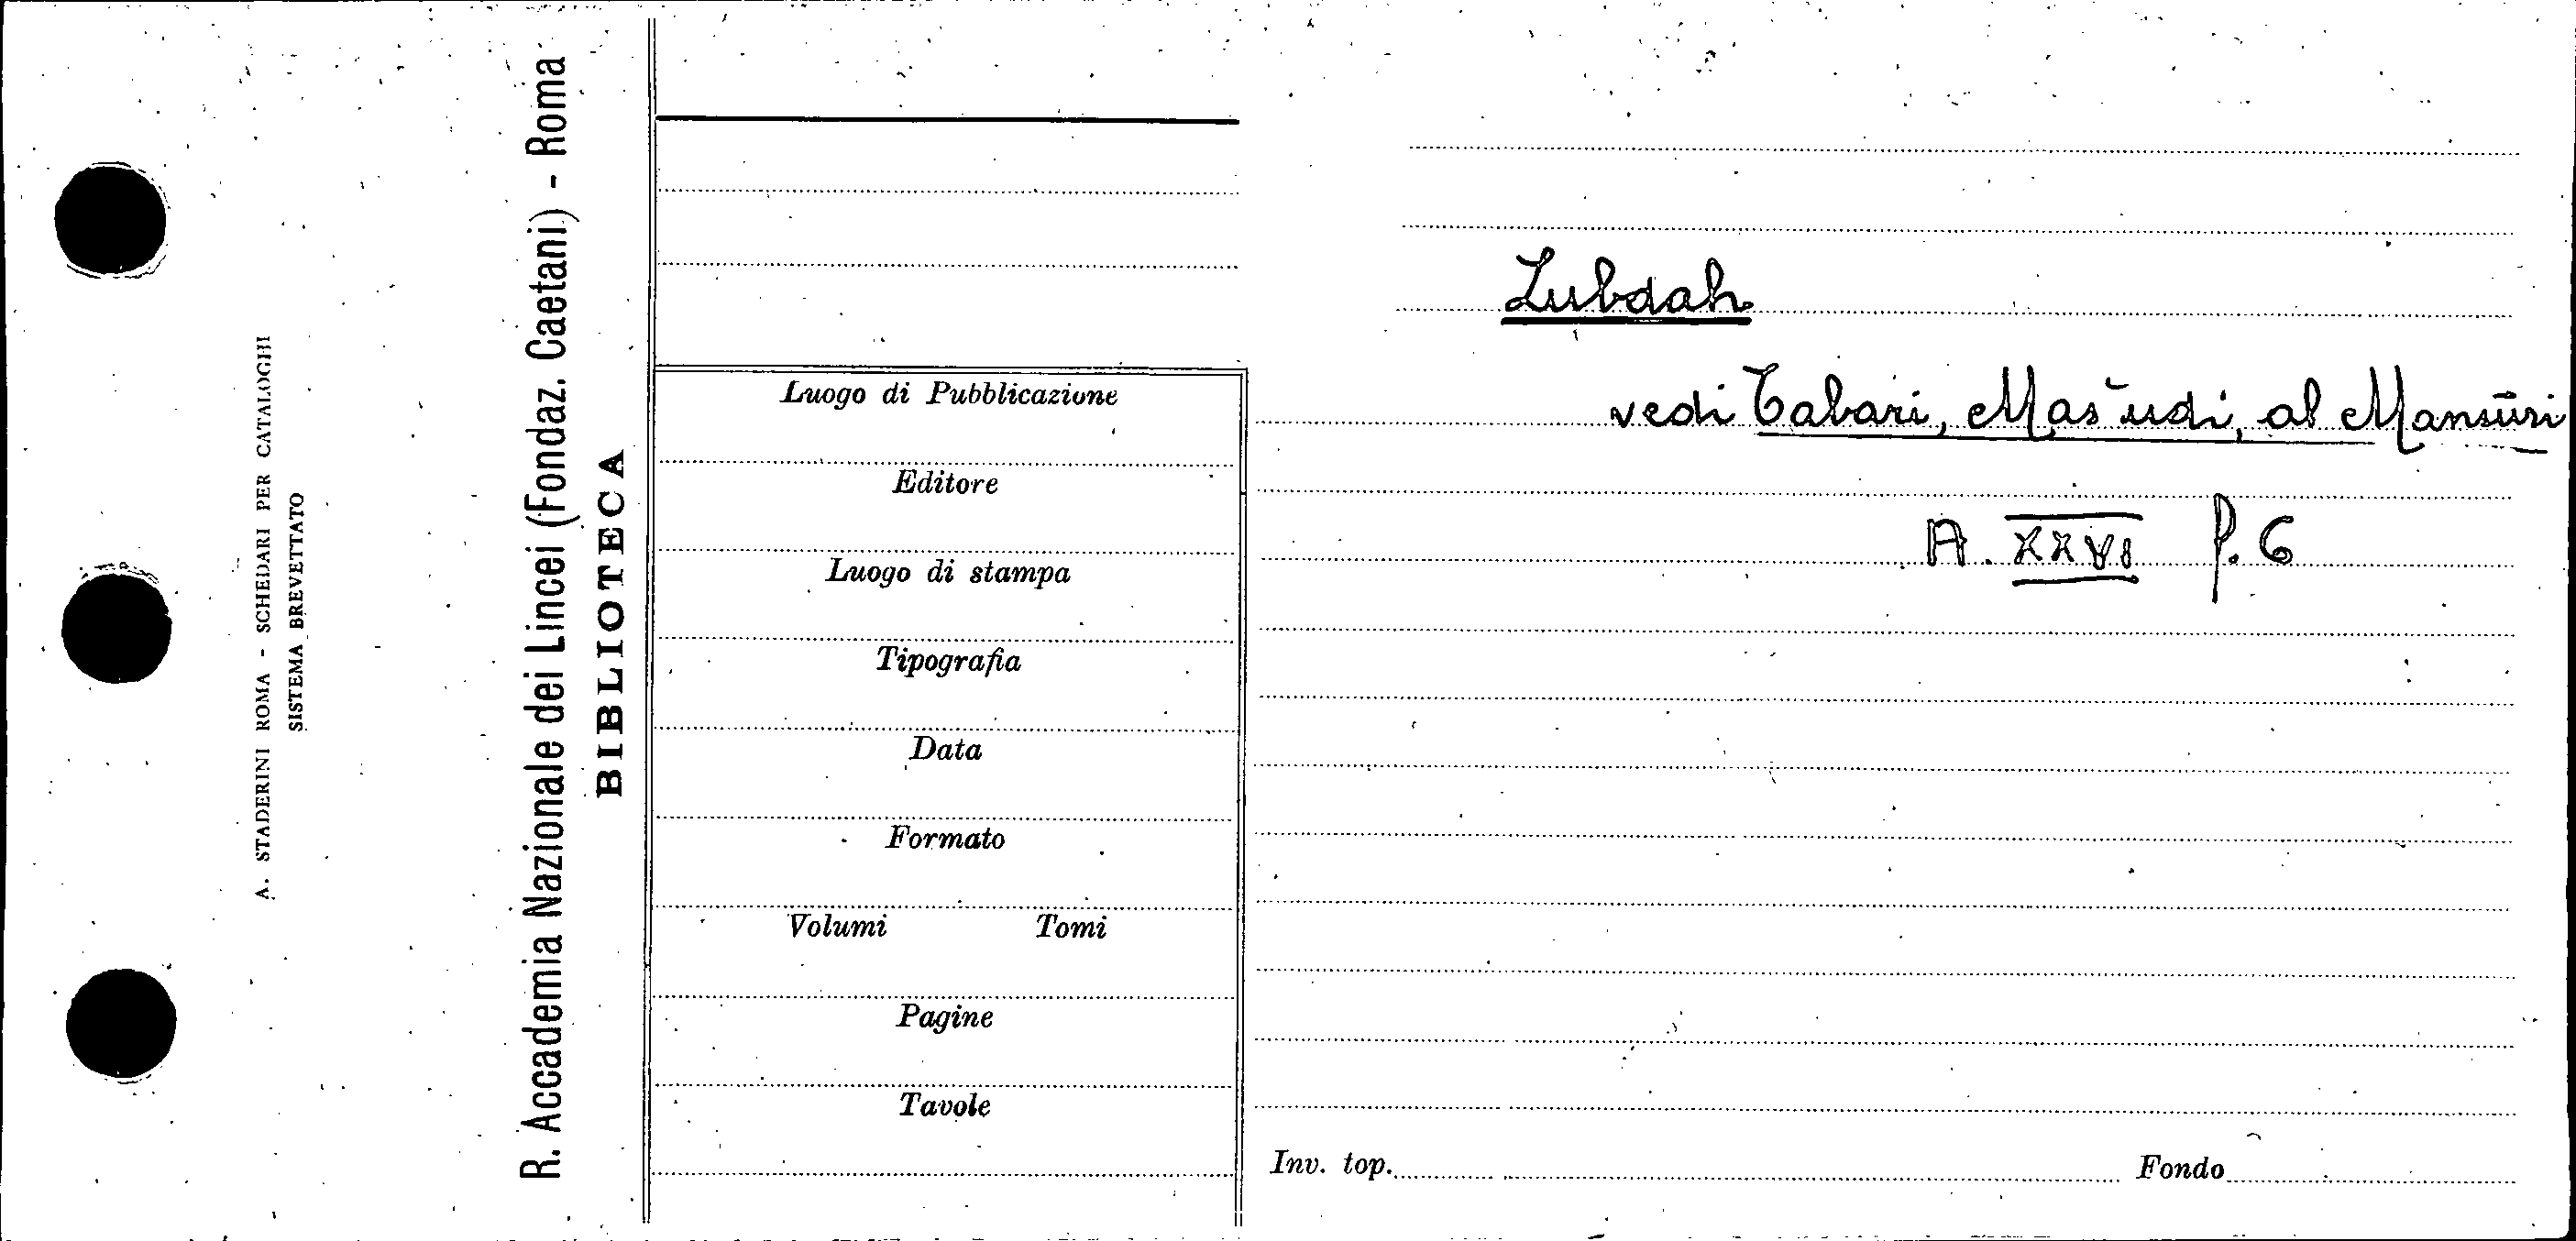 A. STADERINI ROMA - SCHEDARI PER CATALOGHI
SISTEMA BREVETTATO
R. Accademia Nazionale dei Lincei (Fondaz. Caetani) - Roma
BIBLIOTECA
Luogo di Pubblicazione
Editore
Luogo di stampa
Tipografia
Data
Formato
Volumi Tomi
Pagine
Tavole
Lubdah
vedi Tabari, Mas'udi, al Mansūri
A. XXVI P. 6
Inv. top. Fondo